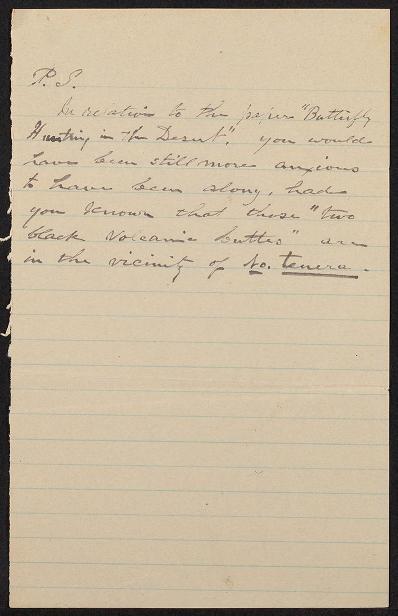 P. S.
In relation to the paper "Butterfly
Hunting in the Desert", you would
have been still more anxious
to have been along, had
you known that those "two
black volcanic buttes" are
in the vicinity of No. tenera.